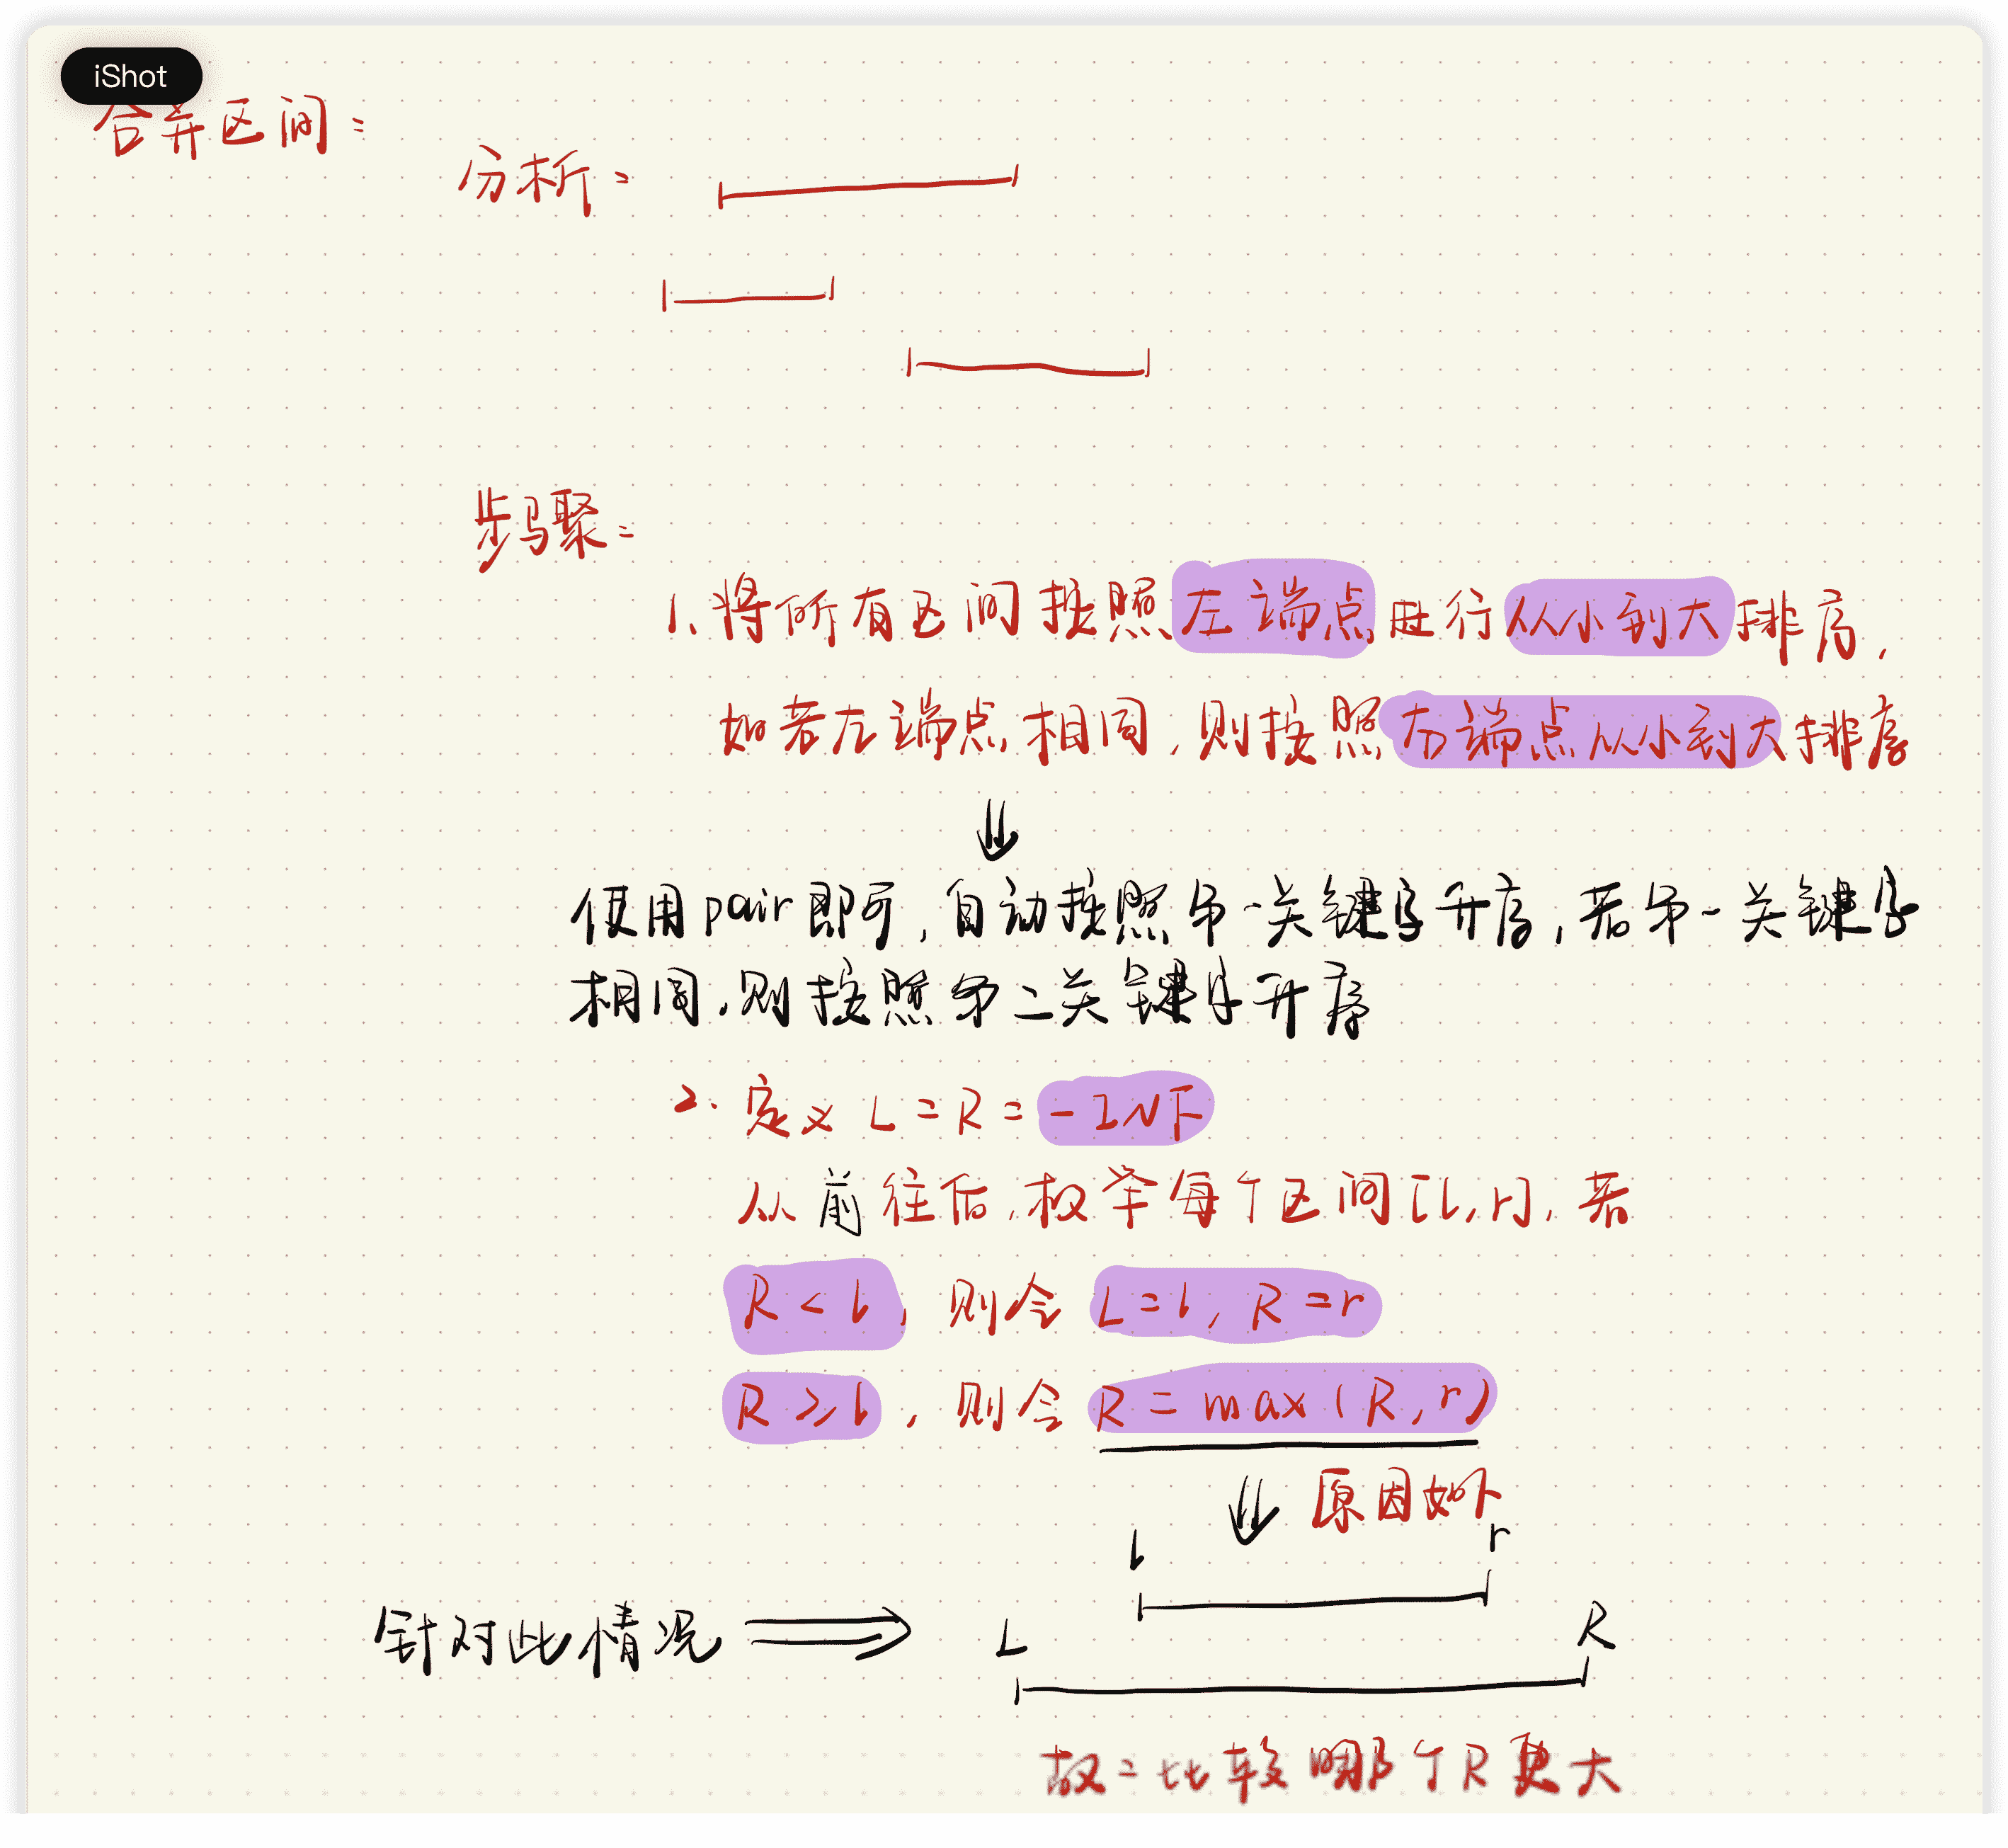 iShot
合并区间：
分析：
步骤：
1、将所有区间按照左端点进行从小到大排序，
如若左端点相同，则按照右端点从小到大排序
⇓
使用pair即可，自动按照第一关键字升序，若第一关键字
相同，则按照第二关键字升序
2. 定义 L = R = -INF
从前往后，枚举每个区间[l, r]，若
R < l，则令 L=l, R=r
R ≥ l，则令 R = max(R, r)
⇓ 原因如下
l r
针对此情况 ⟹ L R
故：比较哪个R更大